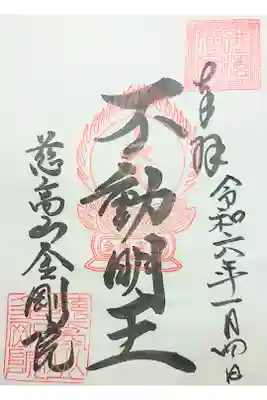 奉拝
令和六年一月四日
不動明王
慈高山金剛院